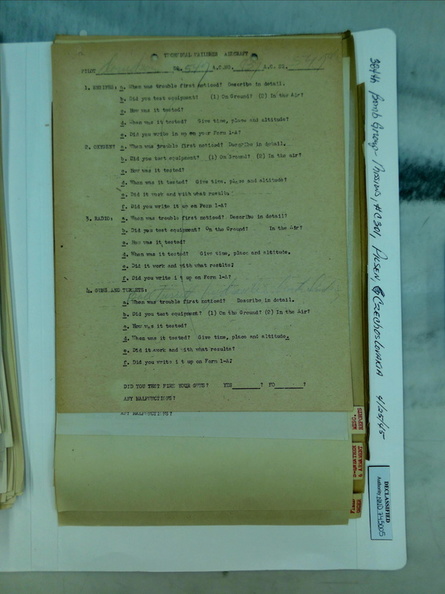 PERSONNEL FAILURES AIRCRAFT
PILOT NO. 549 A.C.NO. A.P. NO.
1. ENGINES: a. When was trouble first noticed? Describe in detail.
b. Did you test equipment? (1) On Ground? (2) In the Air?
c. How was it tested?
d. When was it tested? Give time, place and altitude?
e. Did you write it up on your Form 1-A?
2. OXYGEN: a. When was trouble first noticed? Describe in detail.
b. Did you test equipment? (1) On Ground? (2) In the Air?
c. How was it tested?
d. When was it tested? Give time, place and altitude?
e. Did it work and with what results
f. Did you write it up on Form 1-A?
3. RADIO: a. When was trouble first noticed? Describe in detail?
b. Did you test equipment? On the Ground? In the Air?
c. How was it tested?
d. When was it tested? Give time, place and altitude.
e. Did it work and with what results?
f. Did you write it up on Form 1-A?
4. GUNS AND TURRETS:
a. When was trouble first noticed? Describe in detail.
b. Did you test equipment? (1) On the Ground? (2) In the Air?
c. How was it tested?
d. When was it tested? Give time, place and altitude.
e. Did it work and with what results?
f. Did you write it up on Form 1-A?
DID YOU TEST FIRE YOUR GUNS? YES______? NO______?
ANY MALFUNCTIONS?
ANY MALFUNCTIONS?
384th Bomb Group - Mission, #C301, PILSEN, CZECHOSLOVAKIA 4/25/45
DECLASSIFIED
Authority NND 745005